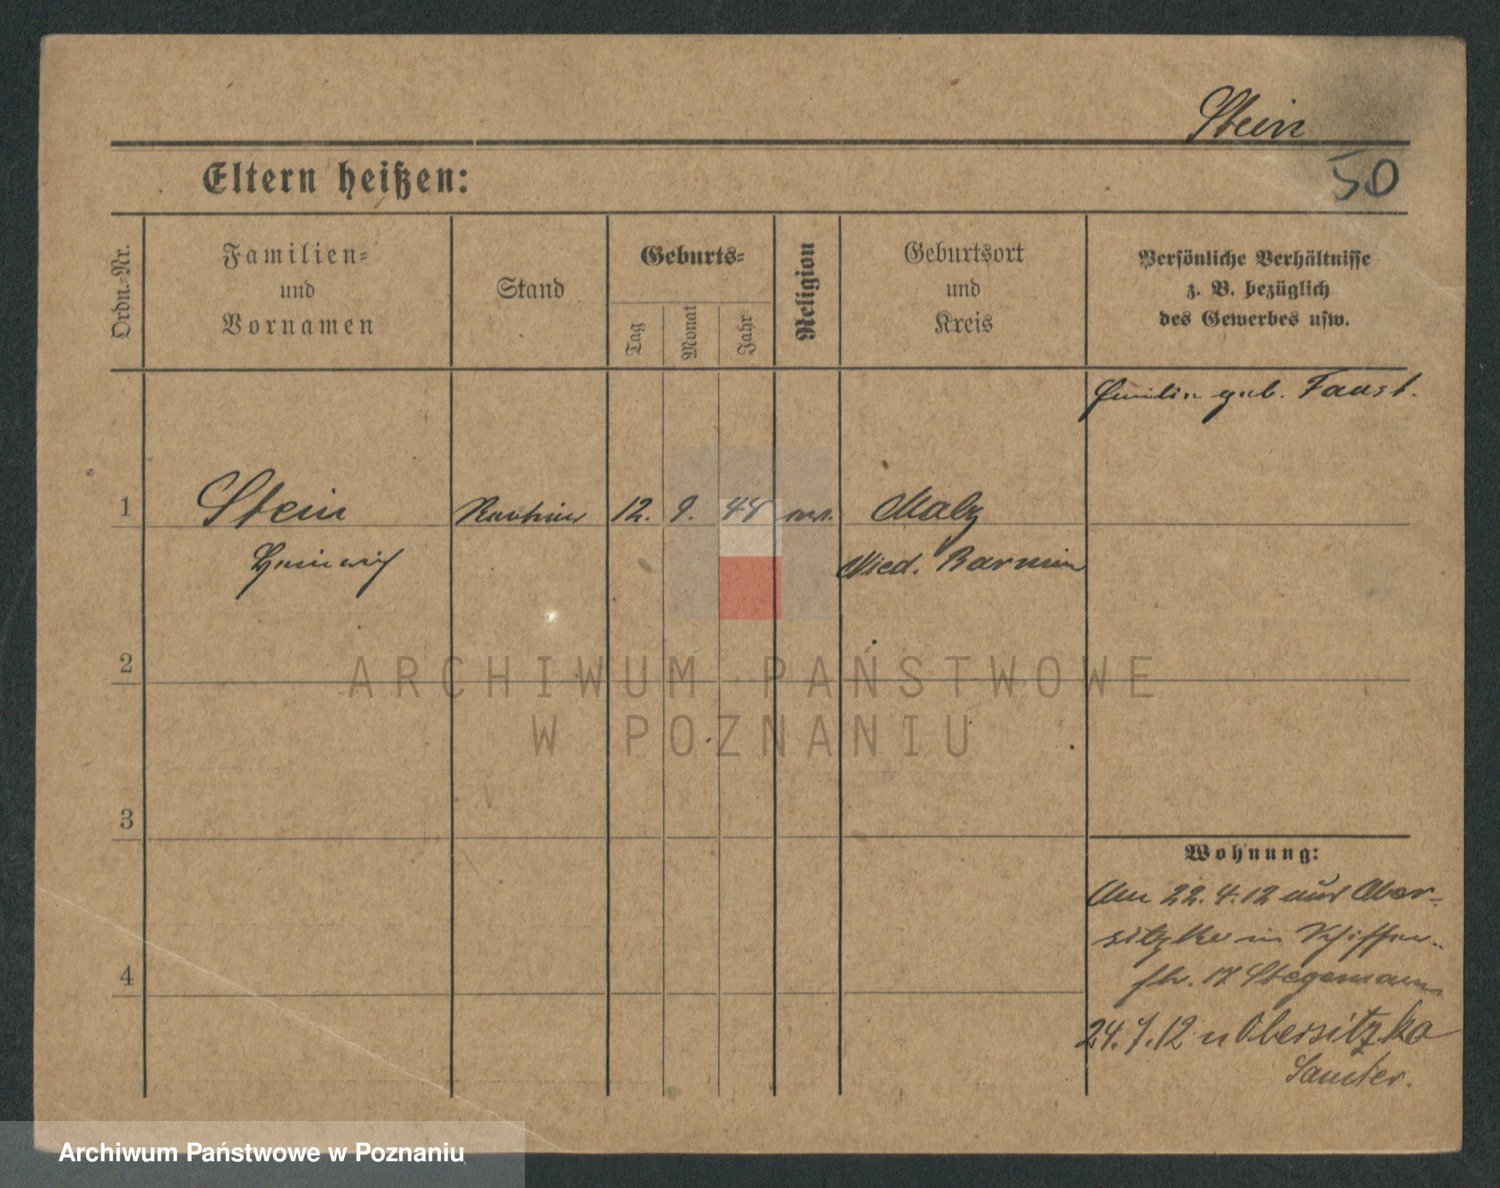 Stein
50
Eltern heißen:
Ordn.-Nr.
Familien-
und
Vornamen
Stand
Geburts-
Tag
Monat
Jahr
Religion
Geburtsort
und
Kreis
Persönliche Verhältnisse
z. B. bezüglich
des Gewerbes usw.
Emilie geb. Faust.
1
Stein
Rentier
12.
9.
44
ev.
Malz
Heinrich
Nied. Barnim
2
ARCHIWUM PAŃSTWOWE
W POZNANIU
3
Wohnung:
Am 22.4.12 aus Ober-
sitzko in Schiffer-
str. 17 Stegemann
4
24.7.12 n Obersitzko
Samter.
Archiwum Państwowe w Poznaniu